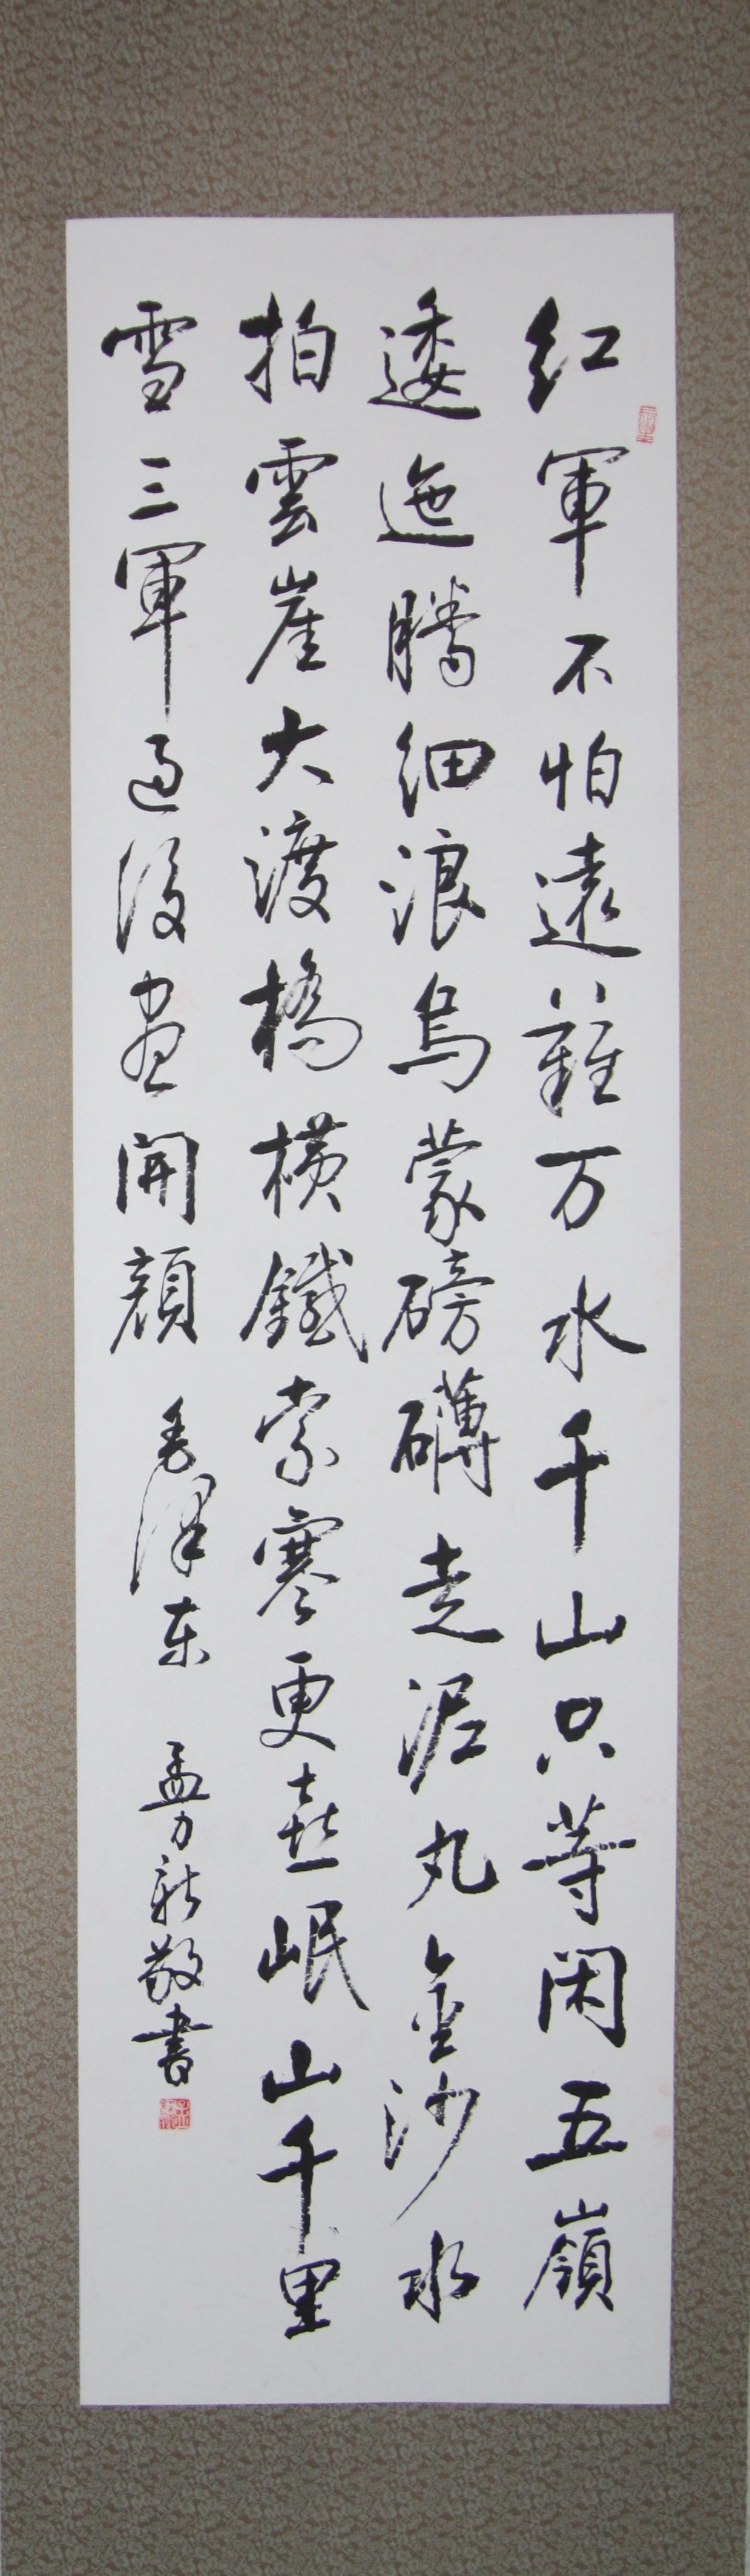 红軍不怕遠難万水千山只等闲五嶺
逶迤騰细浪烏蒙磅礴走泥丸金沙水
拍雲崖大渡橋横鐵索寒更喜岷山千里
雪三軍过後盡開顔 毛澤东 孟力新敬書